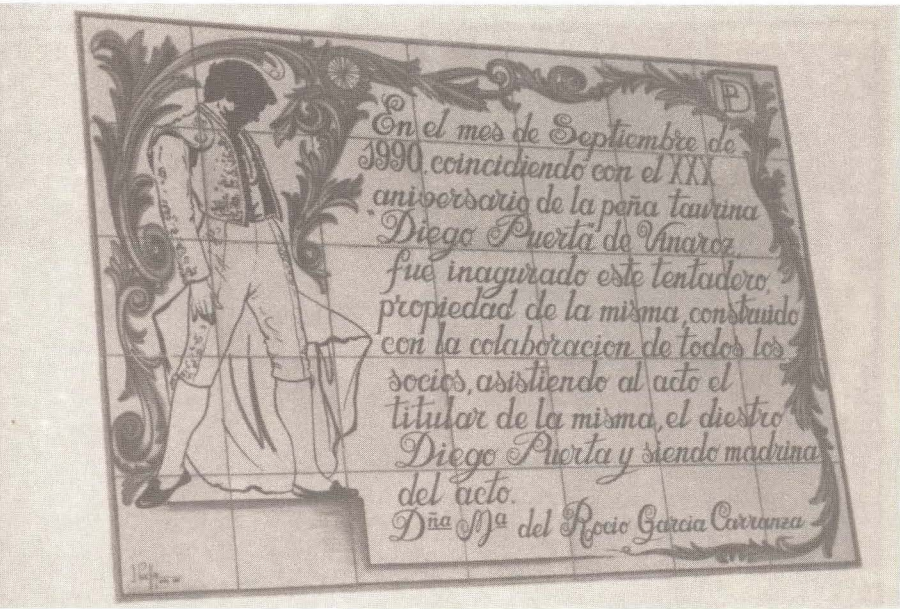 En el mes de Septiembre de
1990, coincidiendo con el XXX
aniversario de la peña taurina
"Diego Puerta" de Vinaroz,
fué inagurado este tentadero,
propiedad de la misma, construido
con la colaboracion de todos los
socios, asistiendo al acto el
titular de la misma, el diestro
Diego Puerta y siendo madrina
del acto.
Dña Mª del Rocio Garcia Carranza